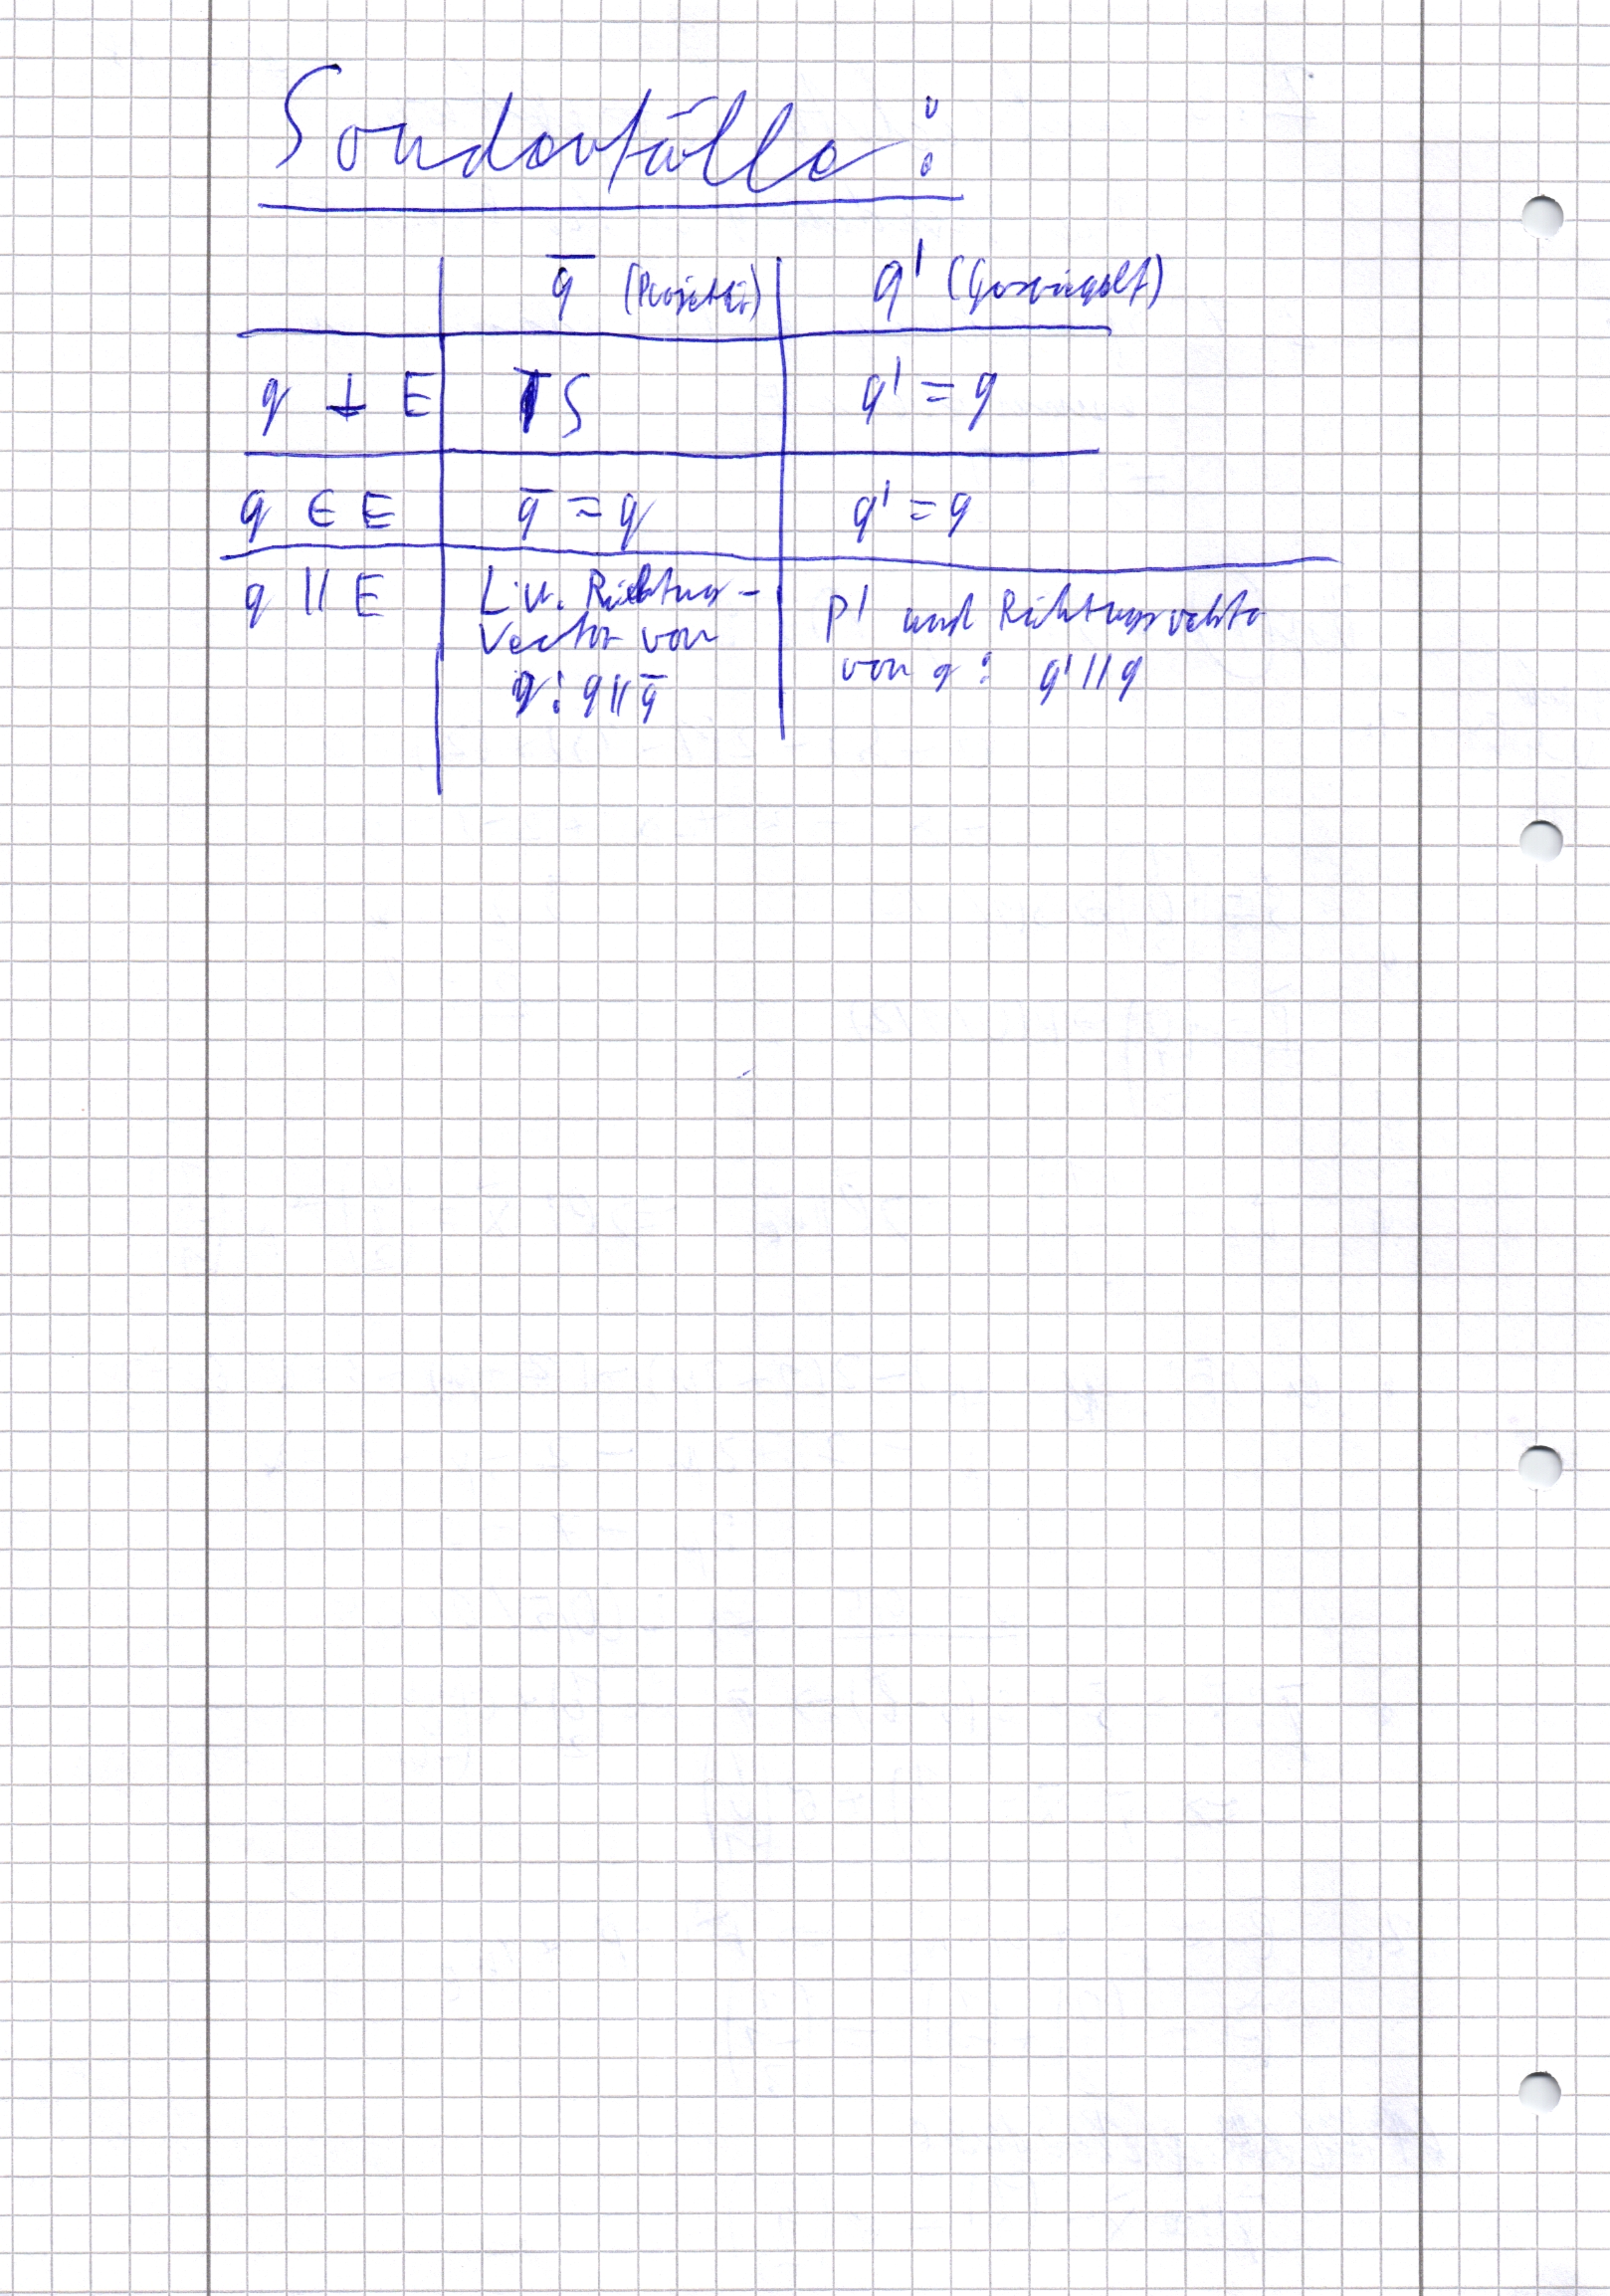 Sonderfälle:
g̅ (Projektion) g' (Gespiegelt)
g ⊥ E S g' = g
g ∈ E g̅ = g g' = g
g || E Richtungs-
Vector von
g: g || g̅
P' und Richtungsvektor
von g: g' || g